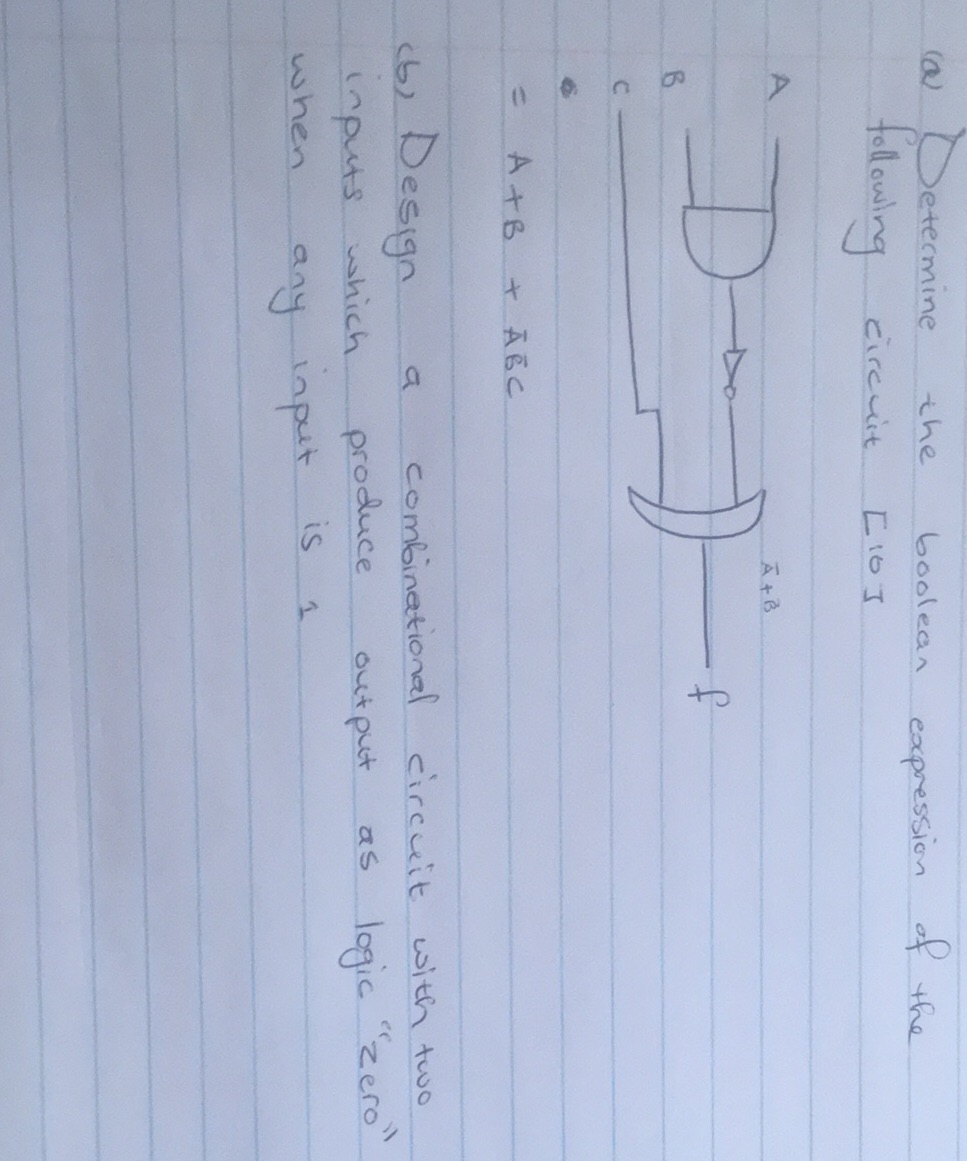 (a) Determine the boolean expression of the
following circuit [10]
A
B
C
Ā+B̄
f
= A+B + ĀB̄C
(b) Design a combinational circuit with two
inputs which produce output as logic "zero"
when any input is 1